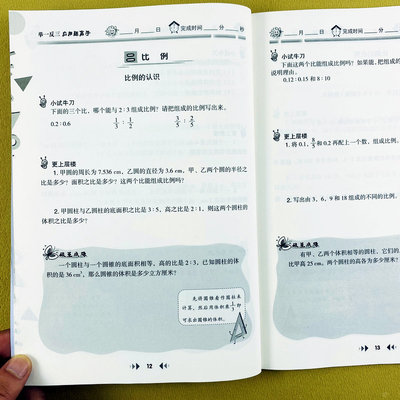 举一反三应用题高手
月 日 完成时间 分 秒
四 比 例
比例的认识
小试牛刀
下面的三个比，哪个能与 2∶3 组成比例？请把组成的比例写出来。
0.2∶0.6 1/3∶1/2 3/5∶2/5
更上层楼
1. 甲圆的周长为 7.536 cm，乙圆的直径为 3.6 cm，甲、乙两个圆的半径之
比是多少？面积之比是多少？这两个比能组成比例吗？
2. 甲圆柱与乙圆柱的底面积之比是 3∶5，高之比是 2∶1，则这两个圆柱的
体积之比是多少？
一个圆柱与一个圆锥的底面积相等，高的比是 2∶3，已知圆柱的体
积的是 36 cm³，那么圆锥的体积是多少立方厘米？
先将圆锥看作圆柱来
计算，然后用体积乘 1/3 即
可求出圆锥的体积。
12
月 日 完成时间
小试牛刀
下面这两个比能组成比例吗？如果能，把组成
说明理由。
0.12∶0.15 和 8∶10
更上层楼
1. 将 0.1，8/5 和 0.2 再配上一个数，组成比例，
2. 写出由 3、6、9 和 18 组成的不同的比例。
有甲、乙两个体积相等的圆柱，它们的
比甲高 25 cm，两个圆柱的高各为多少厘米？
13